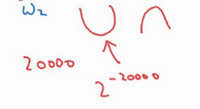 ω₂ ∪ ∩
20000
2⁻²⁰⁰⁰⁰